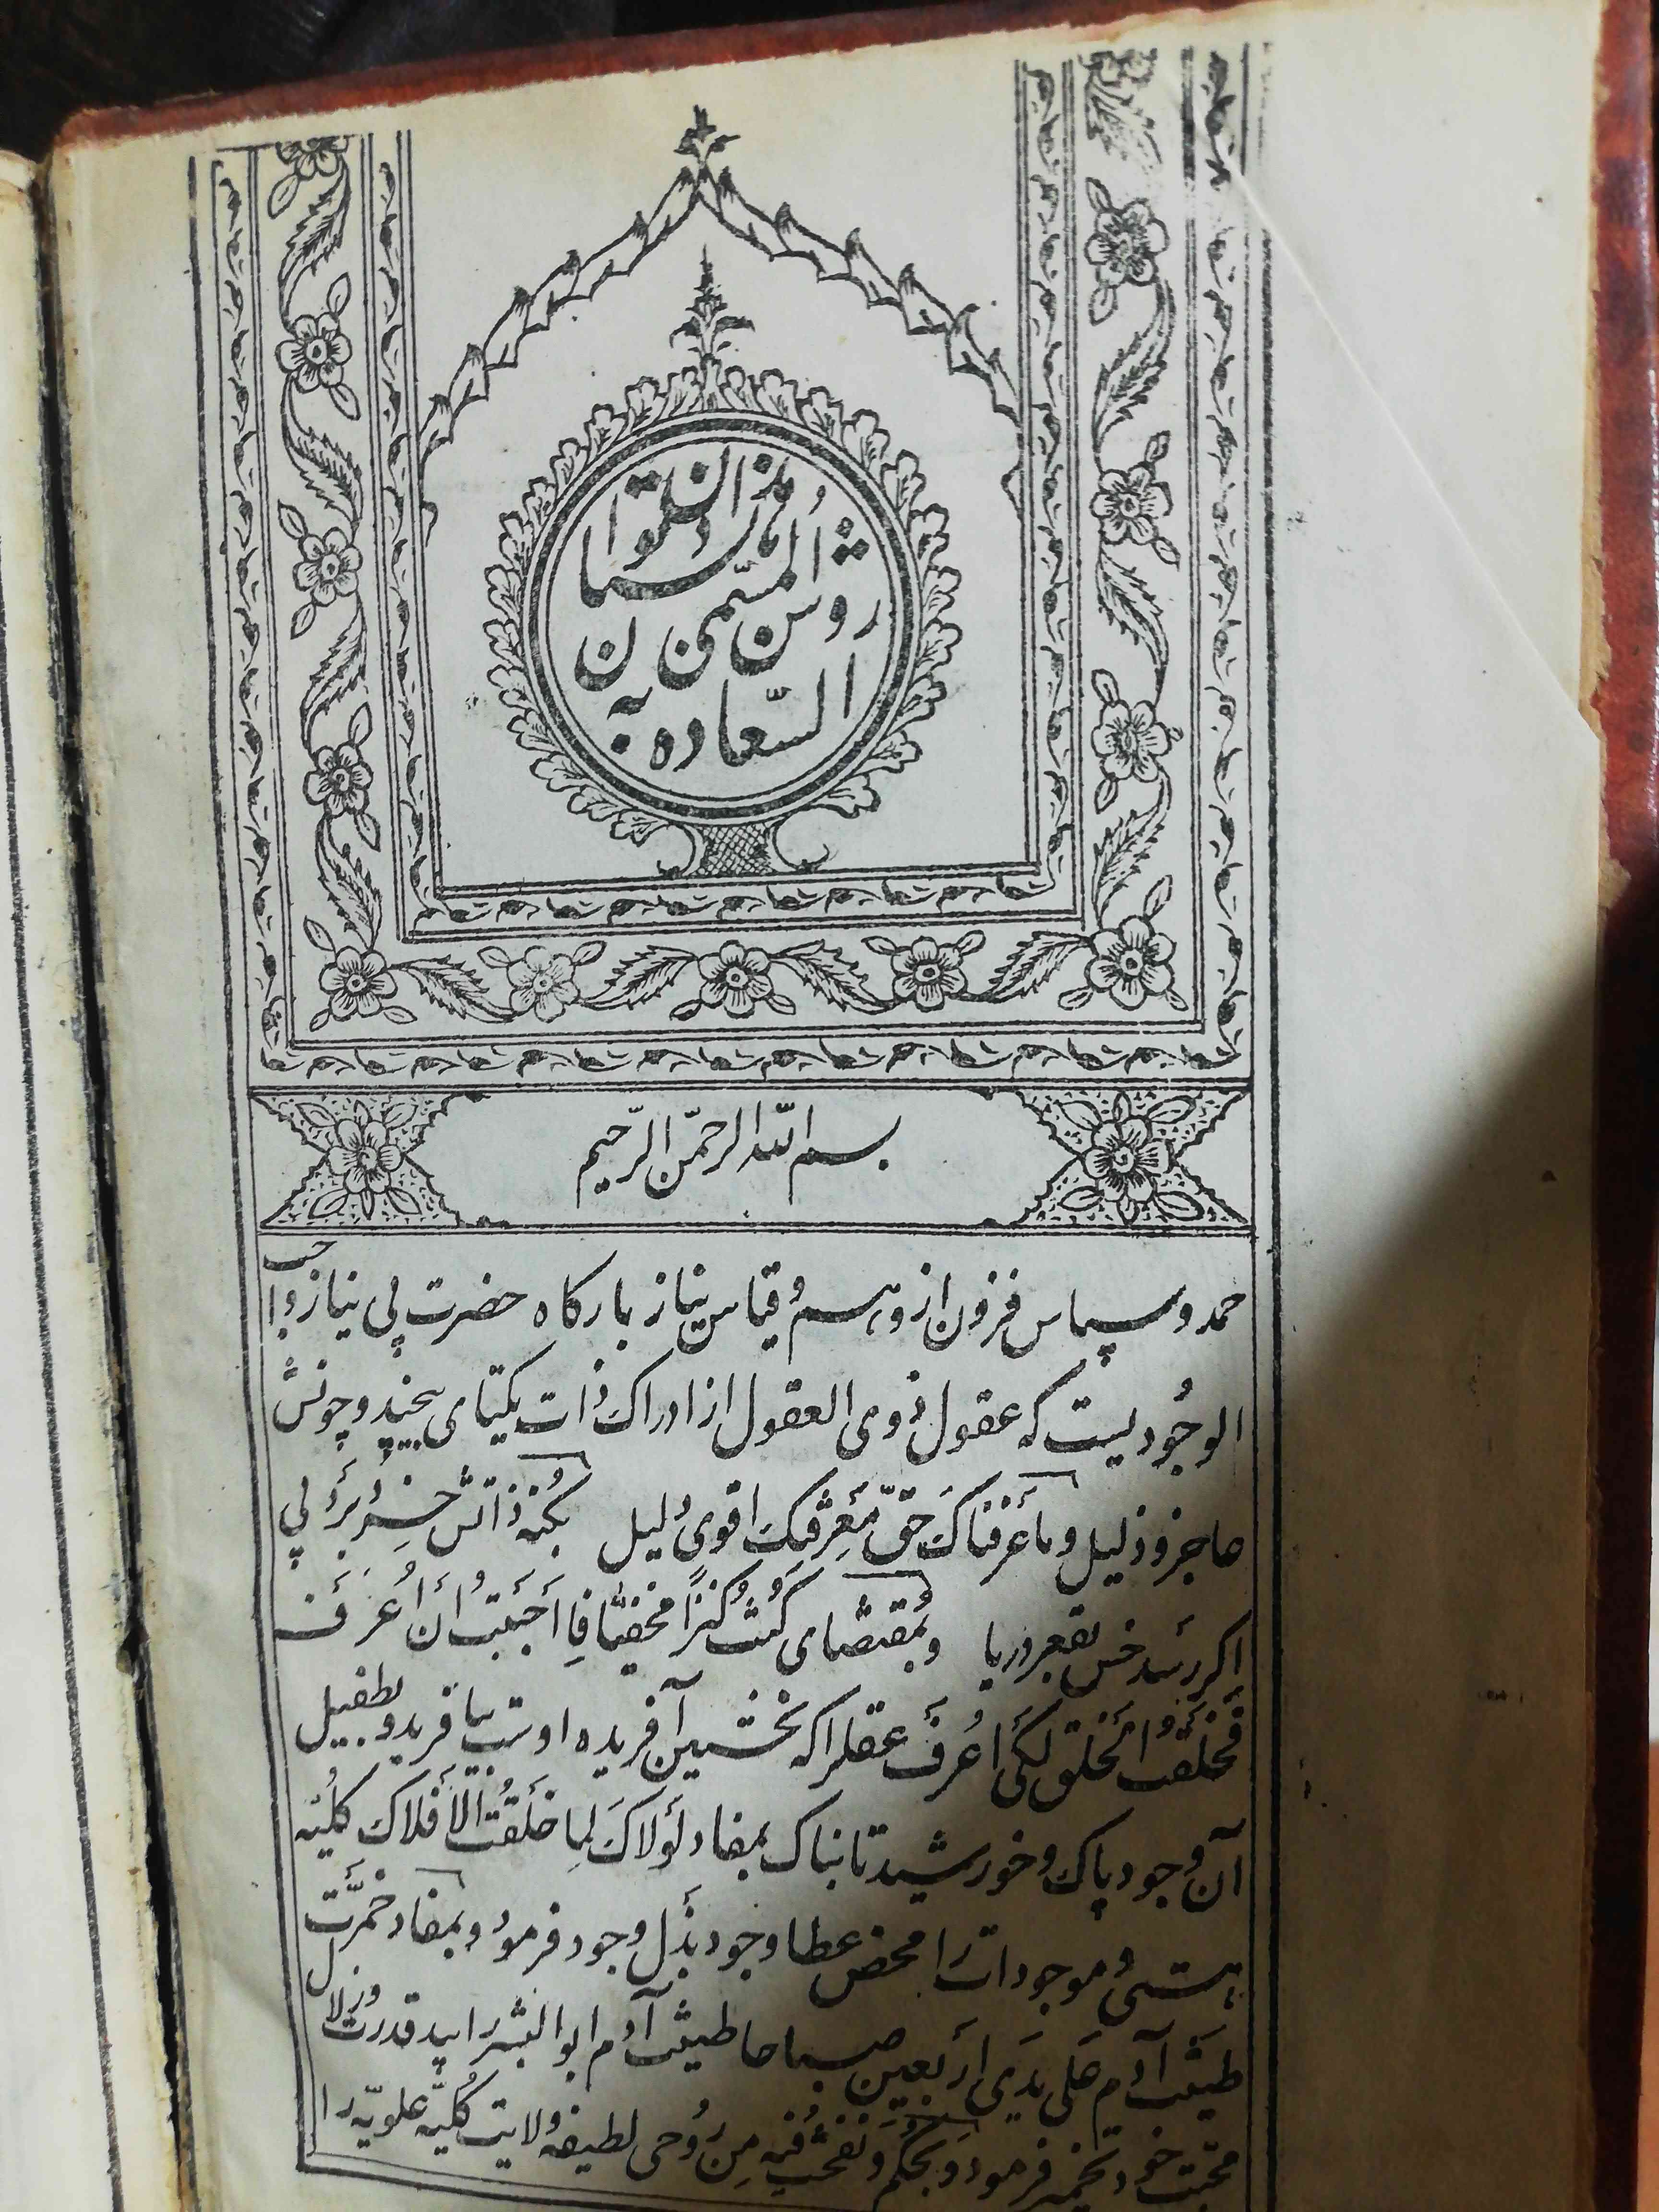 هذا
المسمی
السعاده به
بسم الله الرحمن الرحیم
حمد و سپاس فزون از وهم و قیاس نیاز بارگاه حضرت بی نیاز واجب
الوجودیست که عقول ذوی العقول از ادراک ذات یکتای بیچند و چونش
عاجز و ذلیل و ما عَرَفناکَ حَقَّ مَعرِفَتِک اقوی دلیل بکُنه ذاتش خِرَد بَرَد پی
اگر رسد خس بقعر دریا و بمقتضای کُنتُ کَنزاً مخفیّاً فَاَحبَبتُ اَن اُعرَفَ
فَخَلَقتُ الخَلقَ لِکَی اُعرَفَ عقلرا که نخستین آفریده اوست بیافرید و بطفیل
آن وجود پاک و خورشید تابناک بمفاد لَولاکَ لَما خَلَقتُ الاَفلاک کلیّه
هستی و موجودات را محض عطا و جود بذل وجود فرمود و بمفاد خَمَّرتُ
طینَتَ آدم عَلی یَدَی اَربَعین صباحا طینت آدم ابوالبشر را بید قدرت و زلال
محبّت خود تخمیر فرمود و بحکم وَ نَفَختُ فیهِ مِن رُوحی لطیفه ولایت کُلیّه علویّه را